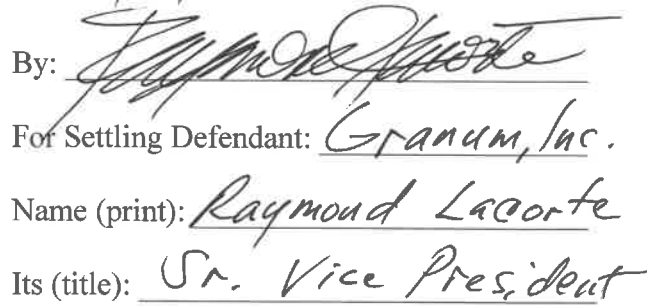 By: Raymond Lacorte
For Settling Defendant: Granum, Inc.
Name (print): Raymond Lacorte
Its (title): Sr. Vice President